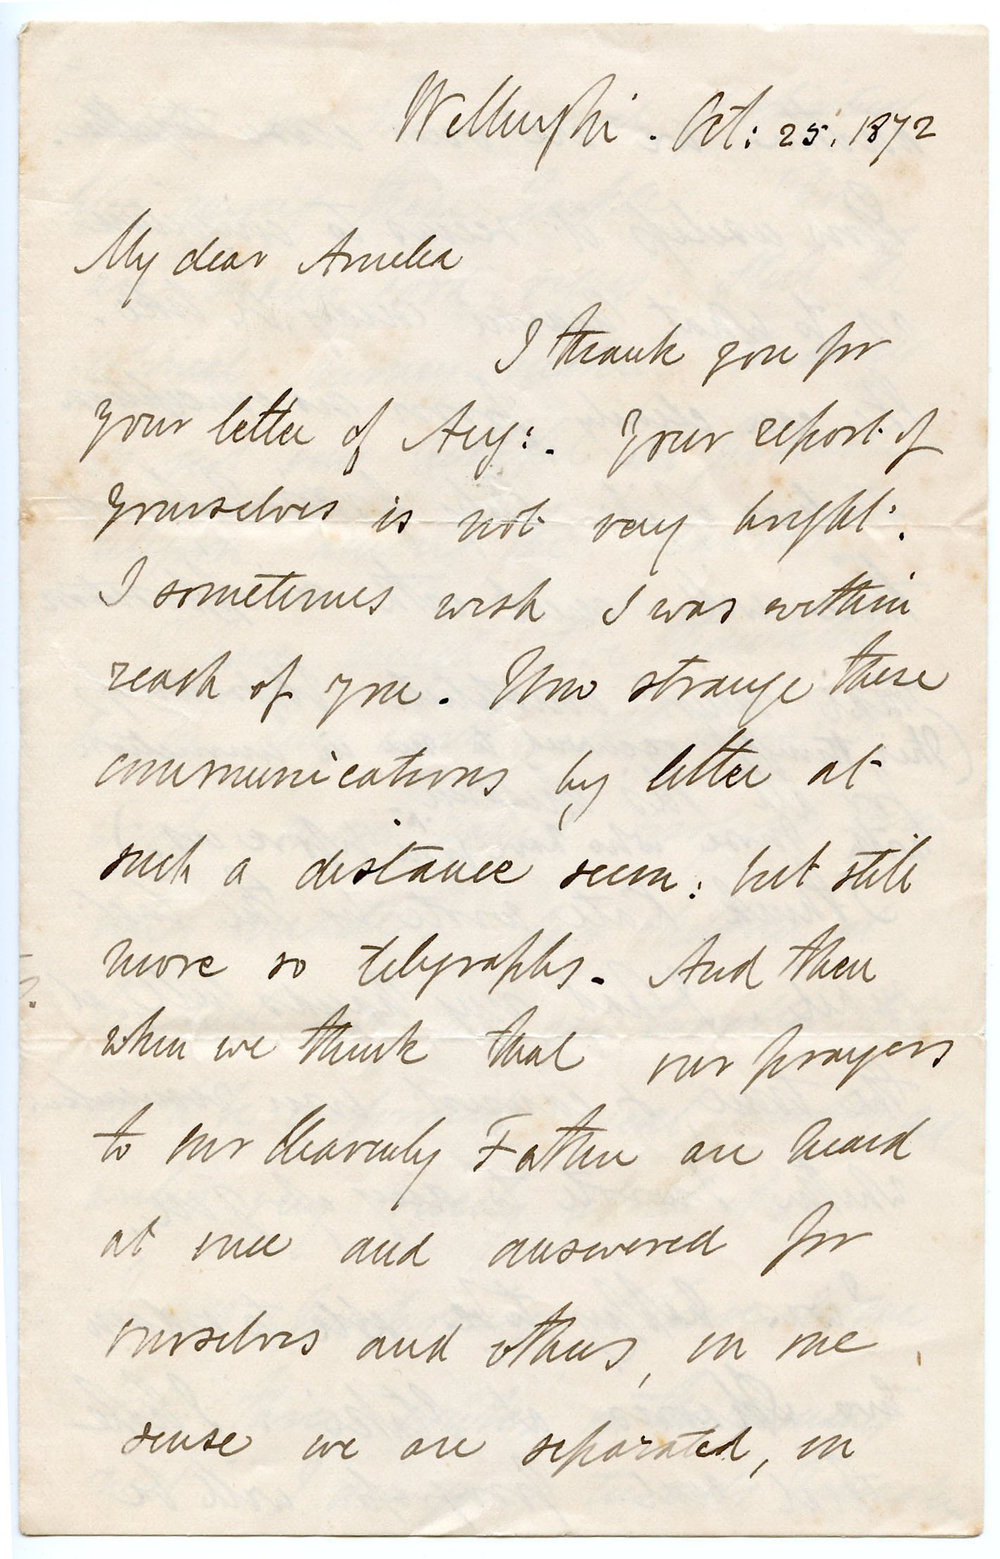 Oct: 25, 1872
My dear Amelia
I thank you for
your letter of Aug:. Your report of
yourselves is not very bright:.
I sometimes wish I was within
reach of you. How strange these
communications by letter at
such a distance seem: but still
more so telegraphs. And then
when we think that our prayers
to our Heavenly Father are heard
at once and answered for
ourselves and others, in one
sense we are separated, in